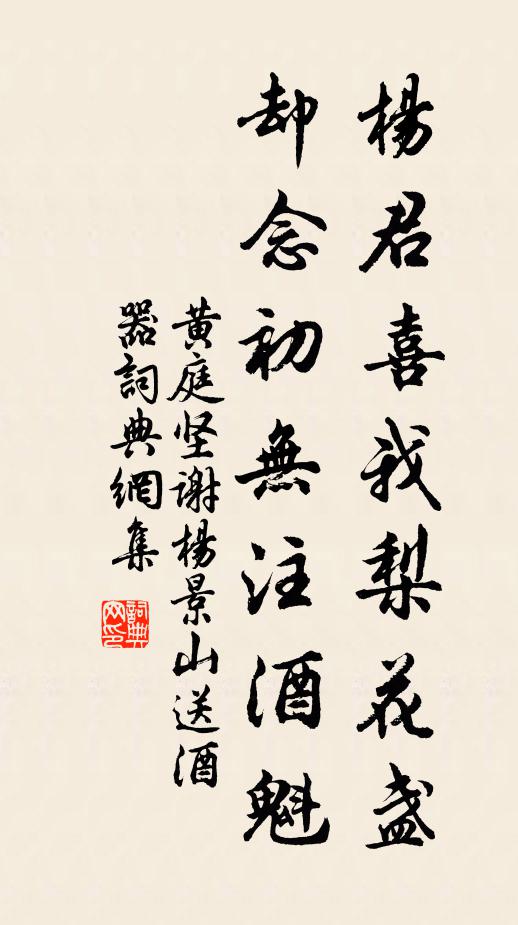 楊君喜我梨花盞
却念初無注酒魁
黄庭坚謝楊景山送酒
器詞典網集
詞典網印